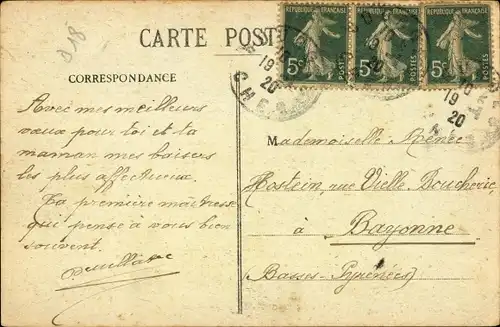 318
CARTE POSTALE
RÉPUBLIQUE FRANÇAISE RÉPUBLIQUE FRANÇAISE RÉPUBLIQUE FRANÇAISE
5c POSTES 5c POSTES 5c POSTES
19 20
CORRESPONDANCE
Avec mes meilleurs
vœux pour toi et ta
maman mes baisers
les plus affectueux
Ta première maîtresse
qui pense à vous bien
souvent.
Mademoiselle Renée
Hostein, rue Vieille Boucherie
à Bayonne
(Basses-Pyrénées)